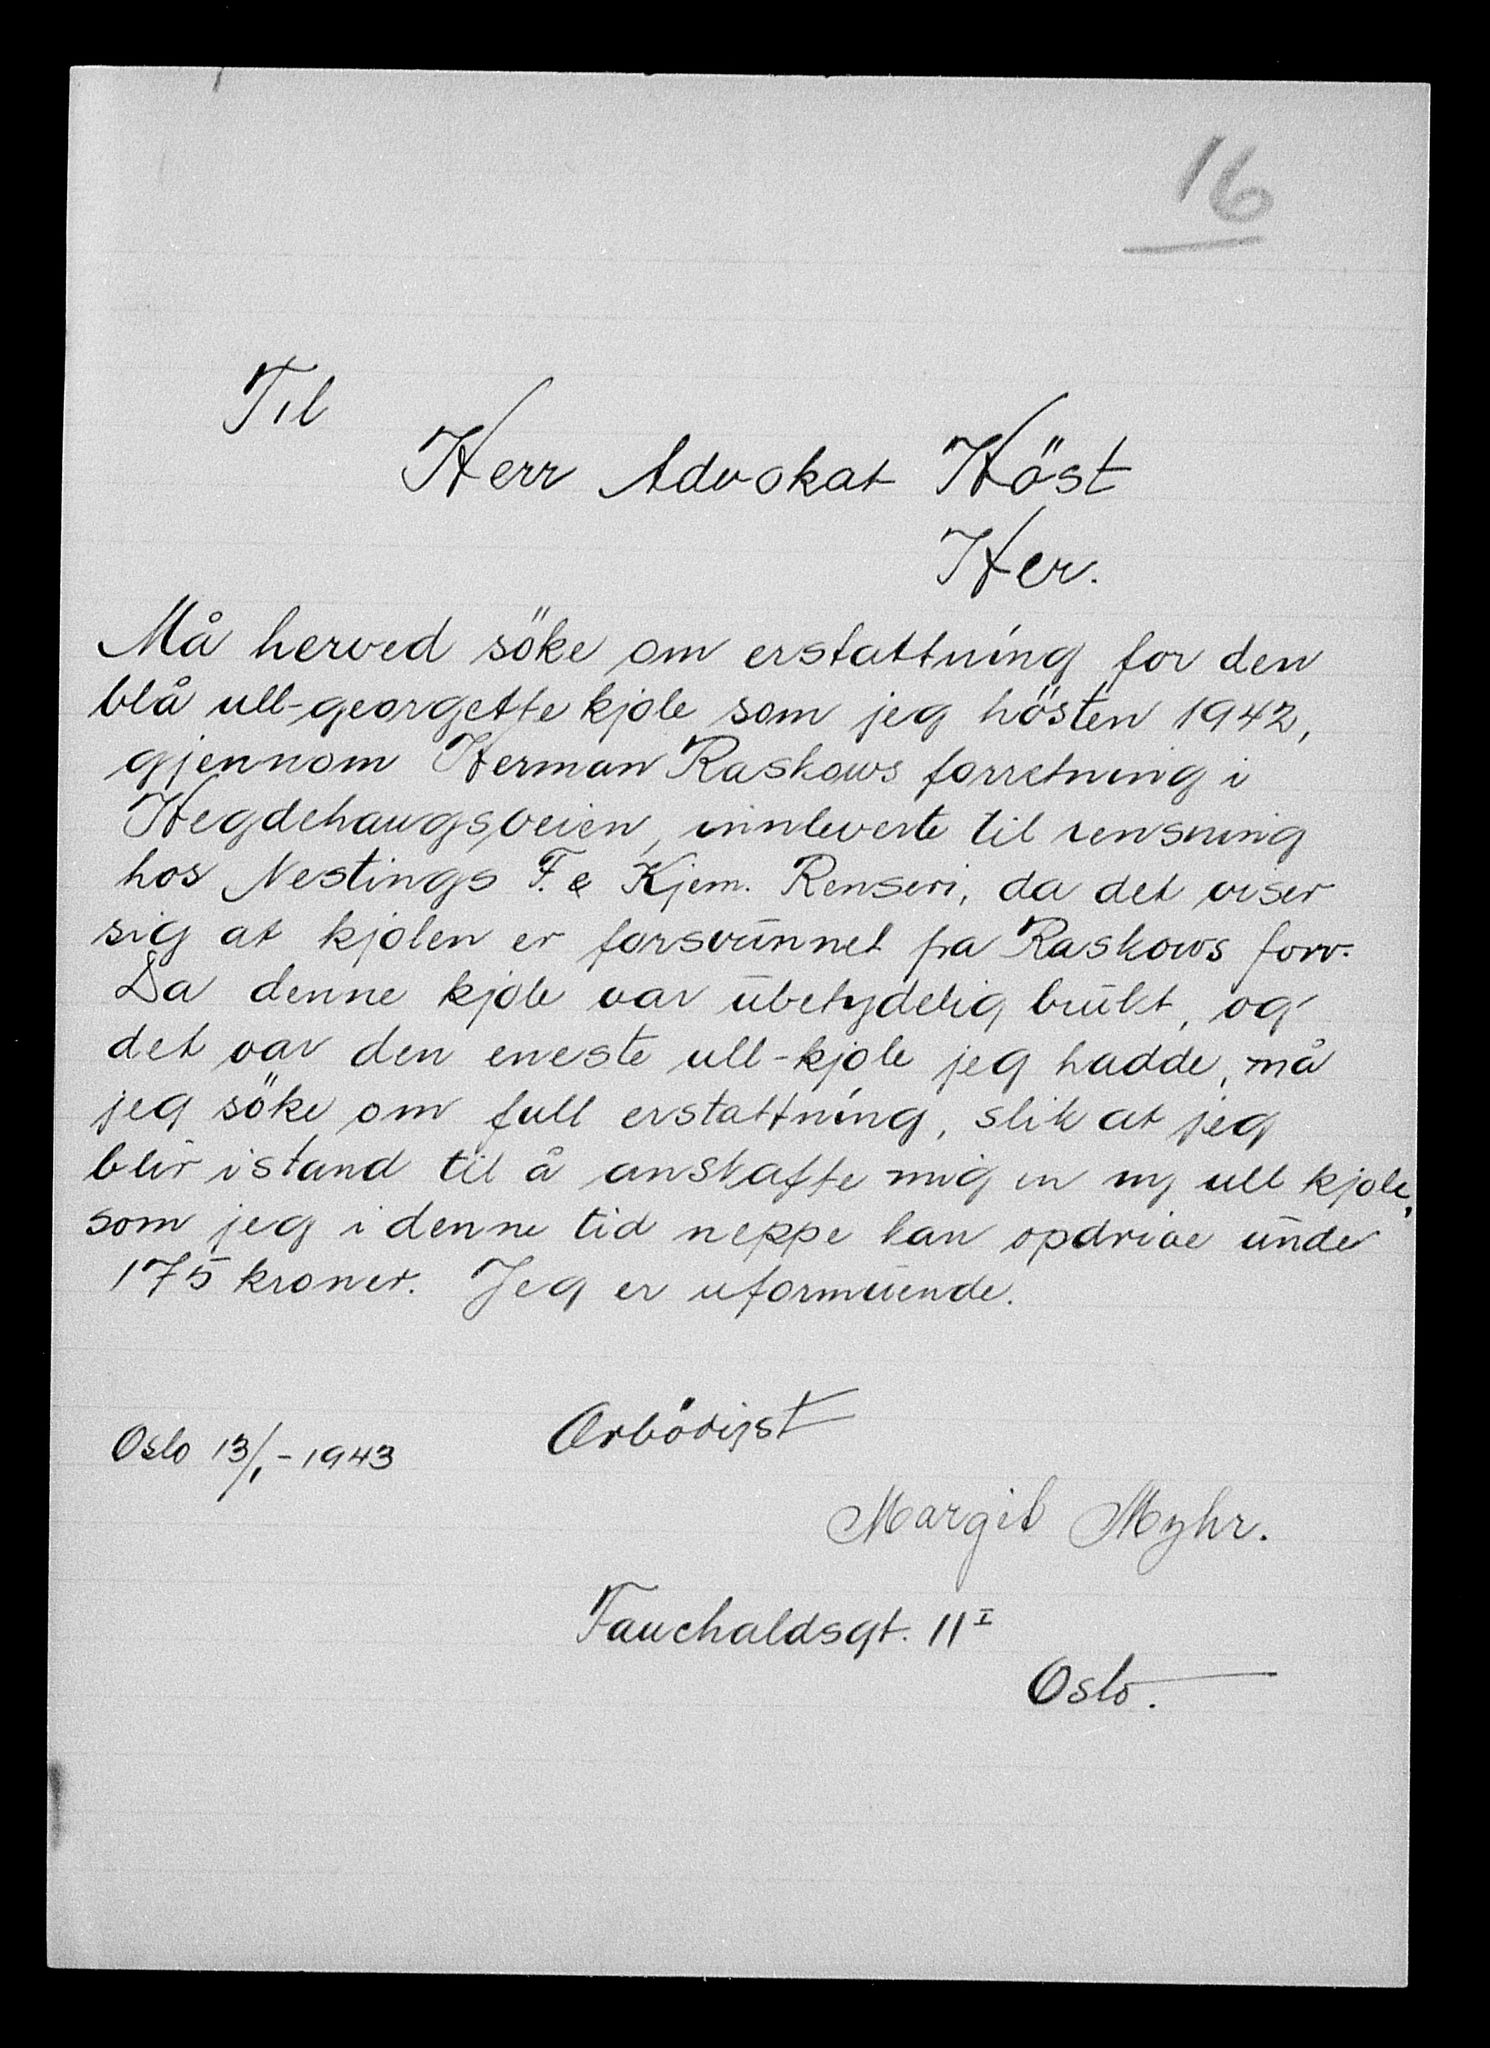 16
Til
Herr Advokat Höst
Her.
Må herved söke om erstattning for den
blå ull-georgette kjole som jeg hösten 1942,
gjennom Herman Raskows forretning i
Hegdehaugsveien, innleverte til rensning
hos Nestings F. & Kjem. Renseri, da det viser
sig at kjolen er forsvunnet fra Raskows forr.
Da denne kjole var ubetydelig brukt, og
det var den eneste ull-kjole jeg hadde, må
jeg söke om full erstattning, slik at jeg
blir istand til å anskaffe mig en ny ull kjole,
som jeg i denne tid neppe kan opdrive under
175 kroner. Jeg er uformuende.
Oslo 13/1-1943 Ærbödigst
Margit Myhr.
Fauchaldsgt. 11 I
Oslo.